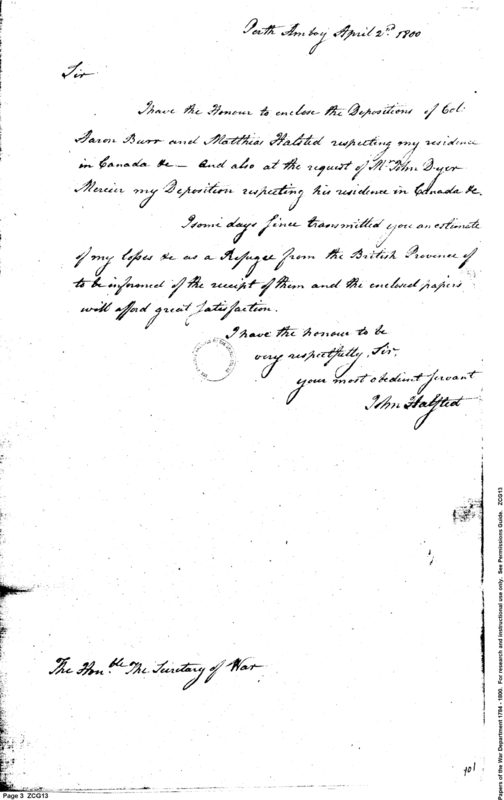 Perth Amboy April 2nd 1800
Sir
I have the Honour to enclose the Depositions of Col:
Aaron Burr and Matthias Halsted respecting my residence
in Canada &c – And also at the request of Mr John Dyer
Mercier my Deposition respecting his residence in Canada &c.
I some days since transmitted you an estimate
of my losses &c as a Refugee from the British Province of
to be informed of the receipt of them and the enclosed papers
will afford great satisfaction.
I have the honour to be
very respectfully, Sir,
your most obedient servant
John Halsted
The Honble The Secretary of War
101
Page 3 ZCG13
Papers of the War Department 1784 - 1800. For research and instructional use only. See Permissions Guide. ZCG13